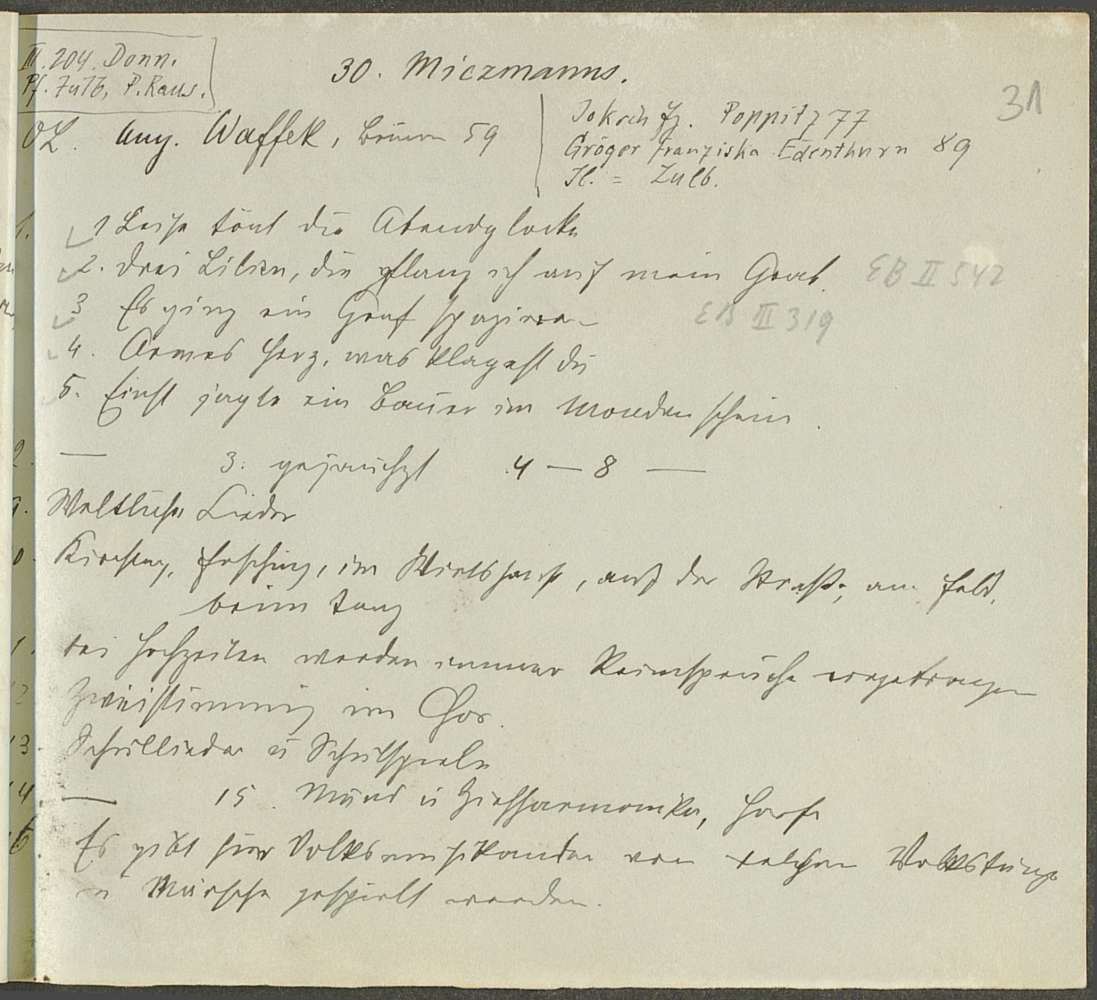 III. 204. Donn.
Pf. Zulb, P. Raus.
30. Miczmanns.
31
OL. Aug. Waffek, Brünn 59
Joksch Fz. Poppitz 77
Gröger Franziska Edenthurn 89
Fl. = Zulb.
1. 1 Leise tönt die Abendglocke
2. Drei Lilien, die pflanz ich auf mein Grab. EB II 542
3 Es ging ein Graf spazieren EB III 319
4. Armes Herz, was klagest du
5. Einst jagte ein Bauer im Mondenschein.
2. — 3. gejauchzt 4 — 8 —
9. Weltliche Lieder
10. Kirchtag, Fasching, im Wirtshause, auf der Straße, am Feld,
beim Tanz
11. bei Hochzeiten werden immer Reimsprüche vorgetragen
12 Zweistimmig im Chor.
13. Schullieder u Schulspiele
14. — 15. Mund u Ziehharmonika, Harfe
16. Es gibt hier Volksmusikanten von welchen Volkstänze
u Märsche gespielt werden.